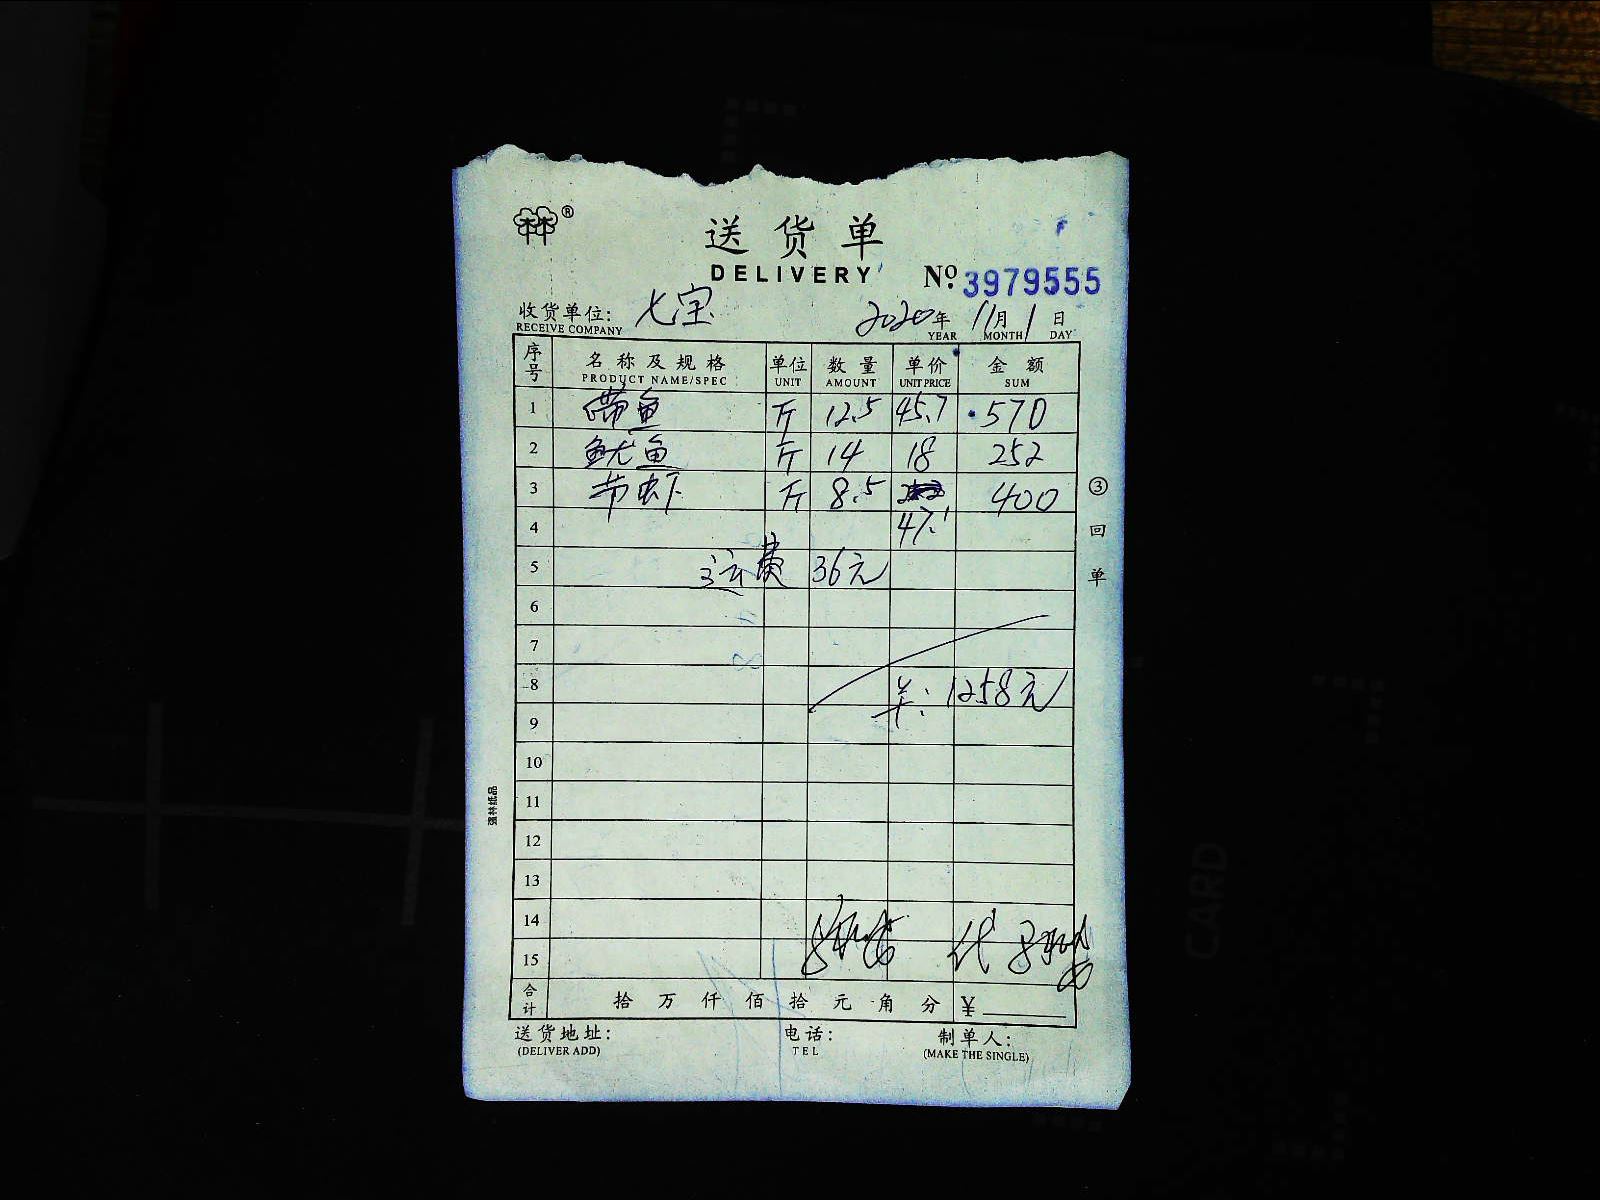 林®
送货单
DELIVERY
No. 3979555
收货单位: 七宝 2020年 11月 1日
RECEIVE COMPANY YEAR MONTH DAY
序号 名称及规格 单位 数量 单价 金额
PRODUCT NAME/SPEC UNIT AMOUNT UNIT PRICE SUM
1 带鱼 斤 12.5 45.7 570
2 鱿鱼 斤 14 18 252
3 节虾 斤 8.5 400
4 47.1
5 运费 36元
6
7
8 1258元
9
10
11
12
13
14
15 代
合计 拾 万 仟 佰 拾 元 角 分 ¥
送货地址: 电话: 制单人:
(DELIVER ADD) TEL (MAKE THE SINGLE)
③回单
强林纸品
CARD